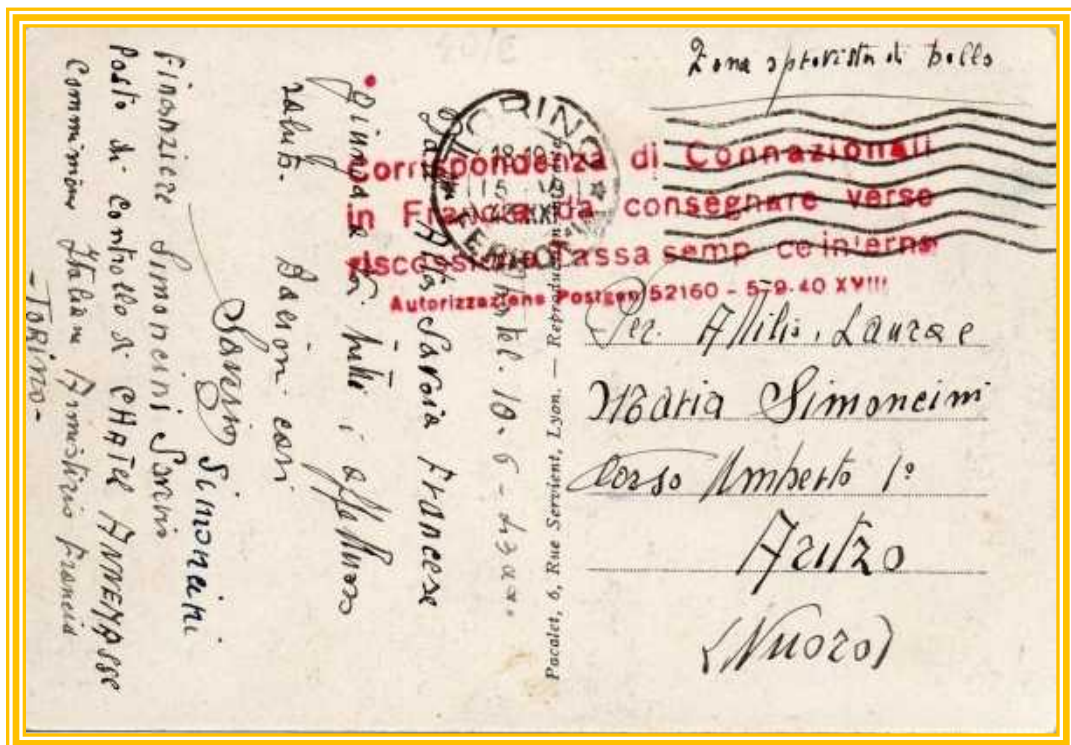 Zona sprovvista di bollo
TORINO
FERROVIA
Corrispondenza di Connazionali
in Francia da consegnare verso
riscossione Tassa semp ce interna
Autorizzazione Postgen 52160 - 5-9-40 XVIII
Per. Attilio, Laura e
Maria Simoncini
Corso Umberto 1º
Aritzo
(Nuoro)
Pacalet, 6, Rue Servient, Lyon. — Reproduction
10. 6 -
Alta Savoia Francese
Giunga a voi tutti i affettuoso
saluti. Bacioni cari
Saverio
Simoncini
Finanziere Simoncini Saverio
Posto di Controllo di CHATEL ANNEMASSE
Commissione Italiana Armistizio Francia
- TORINO -